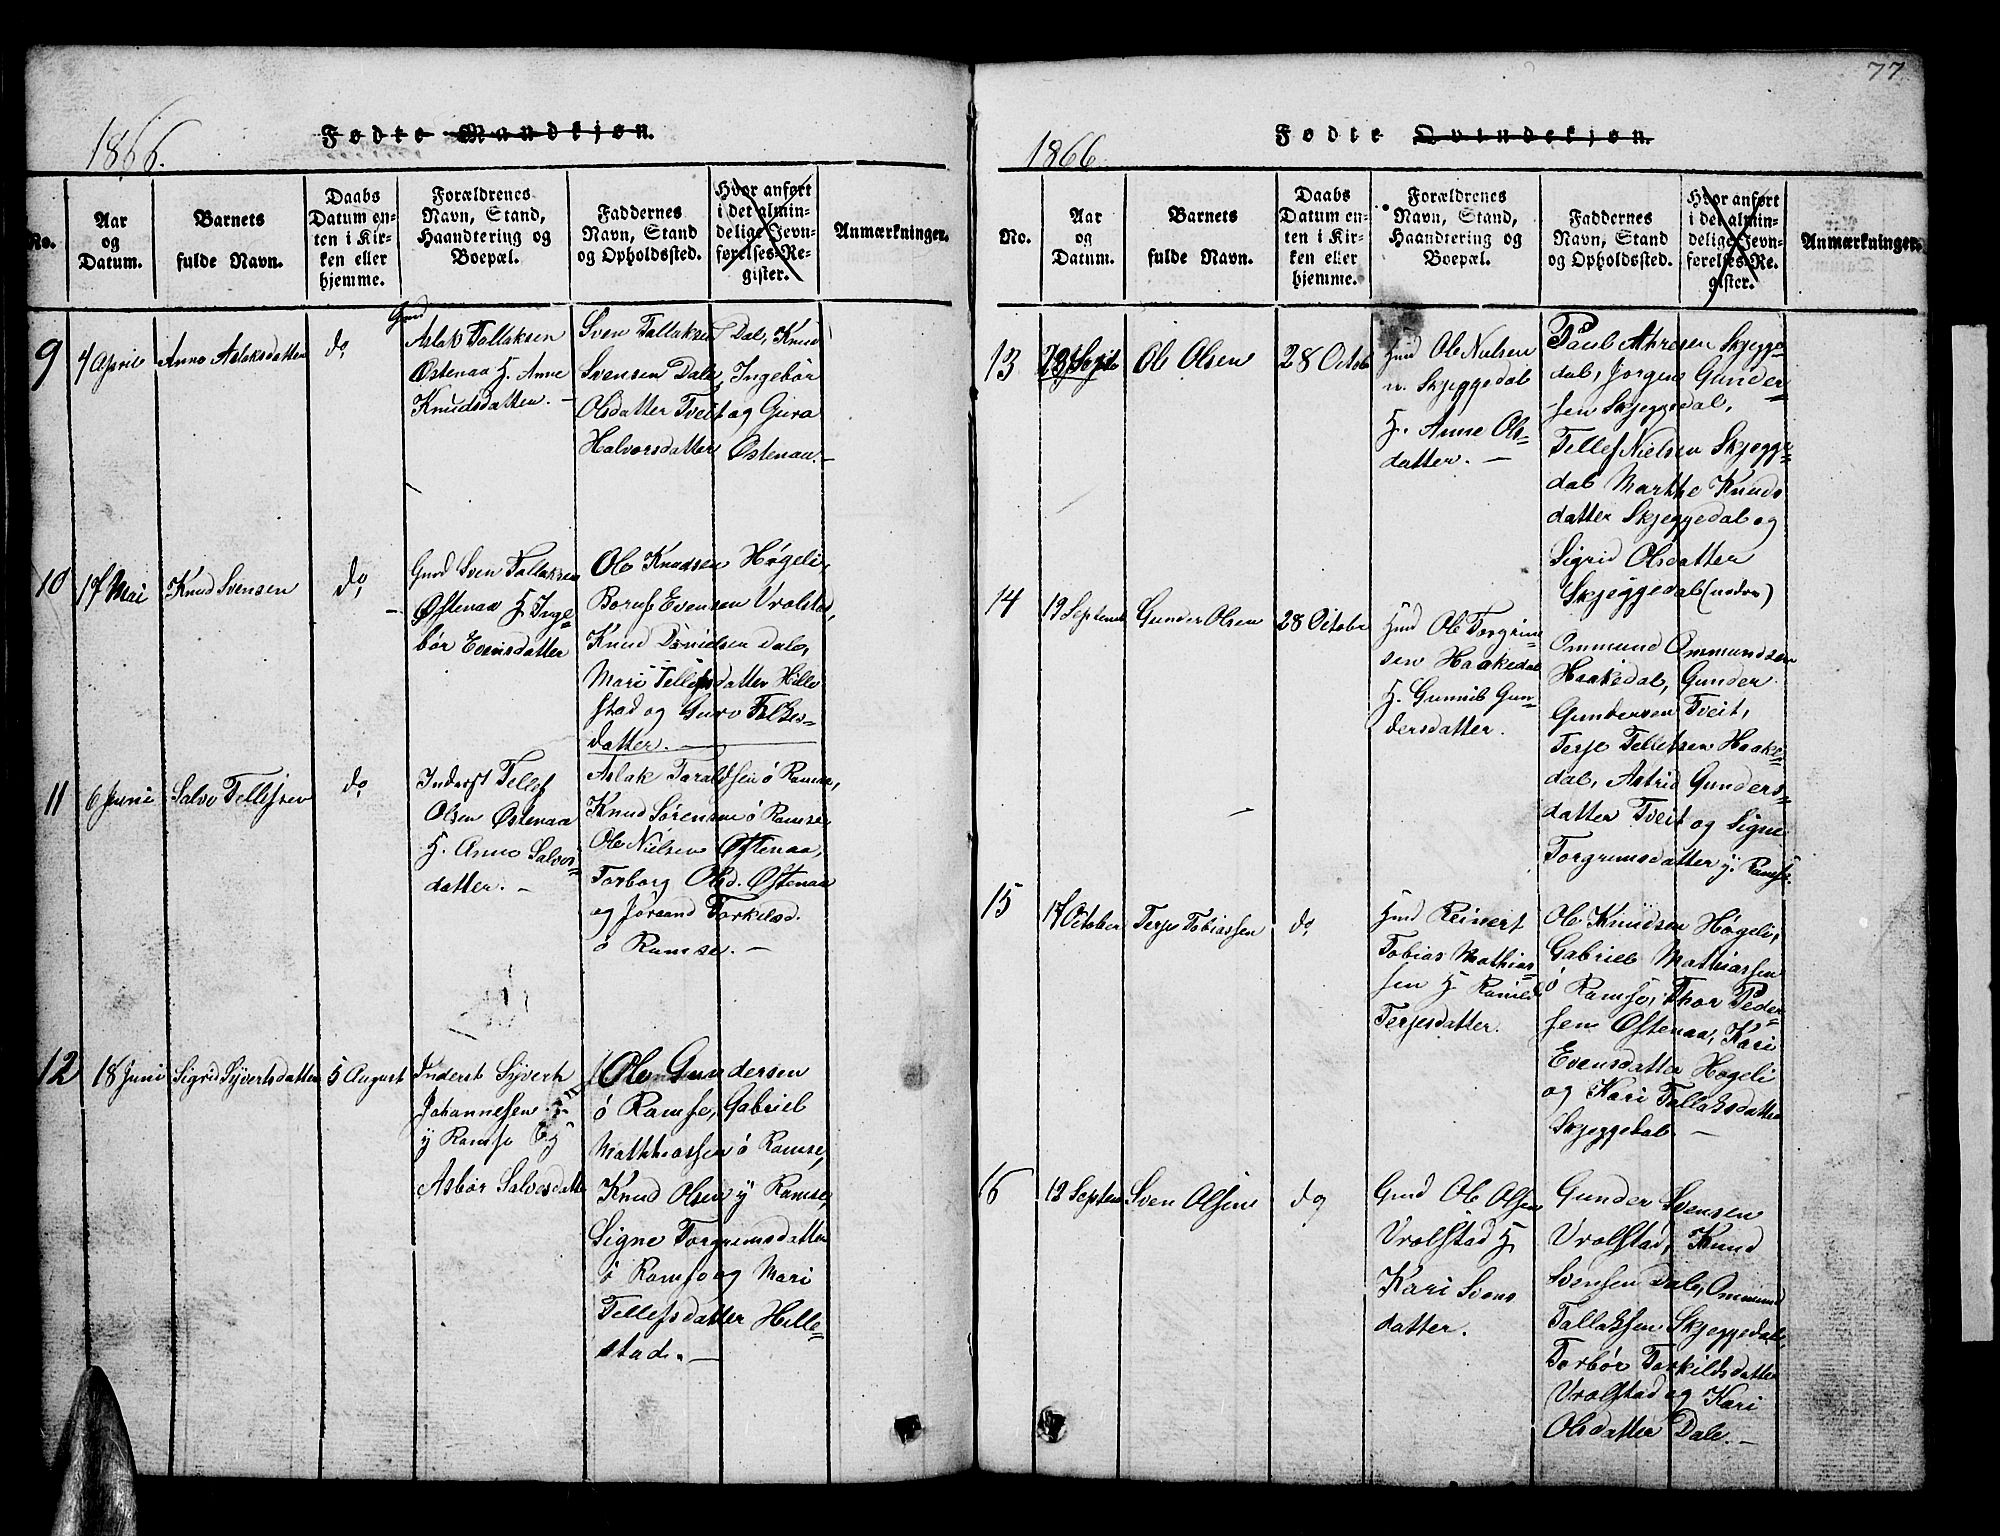 1866.
Fødte Mandkjøn.
No.
Aar
og
Datum.
Barnets
fulde Navn.
Daabs
Datum en-
ten i Kir-
ken eller
hjemme.
Forældrenes
Navn, Stand,
Haandtering og
Boepæl.
Faddernes
Navn, Stand
og Opholdssted.
Hvor anført
i det almin-
delige Jevn-
førelses-Re-
gister.
Anmærkninger.
9
4 April
Anne Aslaksdatter
do
Gmd
Aslak Tallaksen
Østenaa H. Anne
Knudsdatter. –
Sven Tallaksen Dal, Knud
Svensen Dale, Ingebør
Olsdatter Tveit og Guro
Halvorsdatter Østenaa. –
10
17 Mai
Knud Svensen
do
Gmd Sven Tallaksen
Østenaa H. Inge=
bør Evensdatter
Ole Knudsen Høgeli,
Evensen Vrolstad,
Knud Dale,
Mari Tellefsdatter Hille
stad og Guro
datter. –
11
6 Juni
Salve Tellefsen
do
Inderst Tellef
Olsen Østenaa
H. Anne Salves=
datter. –
Aslak Taraldsen ó Ramse,
Knud Sørensen ó Ramse
Ole Nielsen Østenaa,
Torborg Olsd. Østenaa
og Jørand Torkelsd.
ó Ramse. –
12
18 Juni
Sigrid Syvertsdatter
5 August
Inderst Syvert
Johannesen
y Ramse Og
Asbør Salvesdatt
Ole Gundersen
ó Ramse, Gabriel
Mathiassen ó Ramse,
Knud Olsen y Ramse,
Signe Torgrimsdatter
ó Ramse og Mari
Tellefsdatter Hille=
stad. –
77
1866
Fødte Qvindekjøn.
No.
Aar
og
Datum.
Barnets
fulde Navn.
Daabs
Datum en-
ten i Kir-
ken eller
hjemme.
Forældrenes
Navn, Stand,
Haandtering og
Boepæl.
Faddernes
Navn, Stand
og Opholdssted.
Hvor anført
i det almin-
delige Jevn-
førelses-Re-
gister.
Anmærkninger.
13
Sept
Ole Olsen
28 Octob
Hmd Ole Nielsen
n. Skjeggedal
H. Anne Ols=
datter. –
Paul Skjegge=
dal, Jørgen Gunder=
sen Skjeggedal,
Tellef Nielsen Skjegge=
dal Marthe Knuds
datter Skjeggedal og
Sigrid Olsdatter
Skjeggedal (nedre)
14
19 Septemb
Gunder Olsen
28 Octobr
Hmd Ole Torgrim
sen Haakedal
H. Gunnil Gun=
dersdatter.
Ommund Ommundsen
Haakedal, Gunder
Gundersen Tveit,
Terje Tellefsen Haake=
dal, Astrid Gunders=
datter Tveit og Signe
Torgrimsdatter y. Ramse.
15
17 October
Terje Tobiassen
do
Hmd Reinert
Tobias Mathias=
sen H. Ramild
Terjesdatter.
Ole Knudsen Høgeli,
Gabriel Mathiassen
ó Ramse, Thor Peder=
sen Østenaa, Kari
Evensdatter Høgeli
og Kari Tallaksdatter
Skjeggedal. –
16
12 Septem
Sven Olsen
do
Gmd Ole Olsen
Vrolstad H.
Kari Svens
datter.
Gunder Svensen
Vrolstad, Knud
Svensen Dale, Ommund
Tallaksen Skjeggedal,
Torbør Torkildsdatter
Vrolstad og Kari
Olsdatter Dale. –